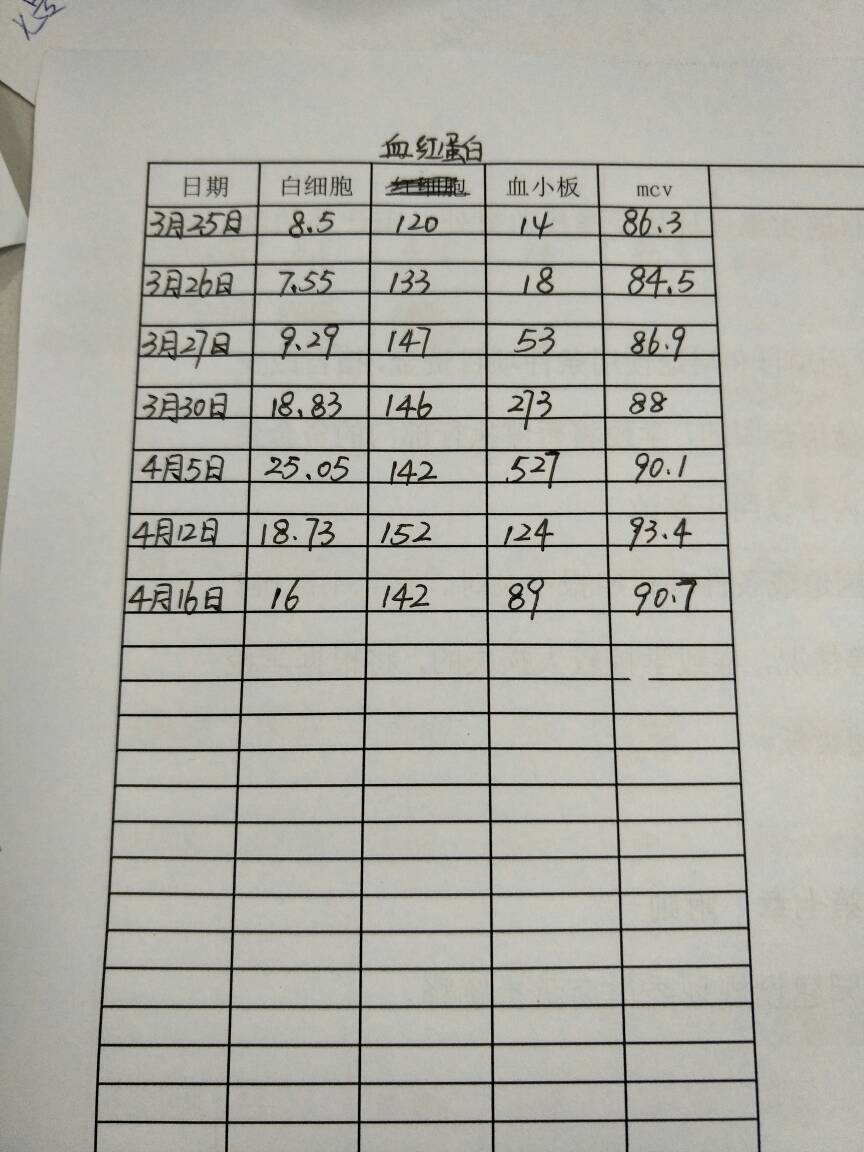 血红蛋白
日期 白细胞 红细胞 血小板 mcv
3月25日 8.5 120 14 86.3
3月26日 7.55 133 18 84.5
3月27日 9.29 147 53 86.9
3月30日 18.83 146 273 88
4月5日 25.05 142 527 90.1
4月12日 18.73 152 124 93.4
4月16日 16 142 89 90.7